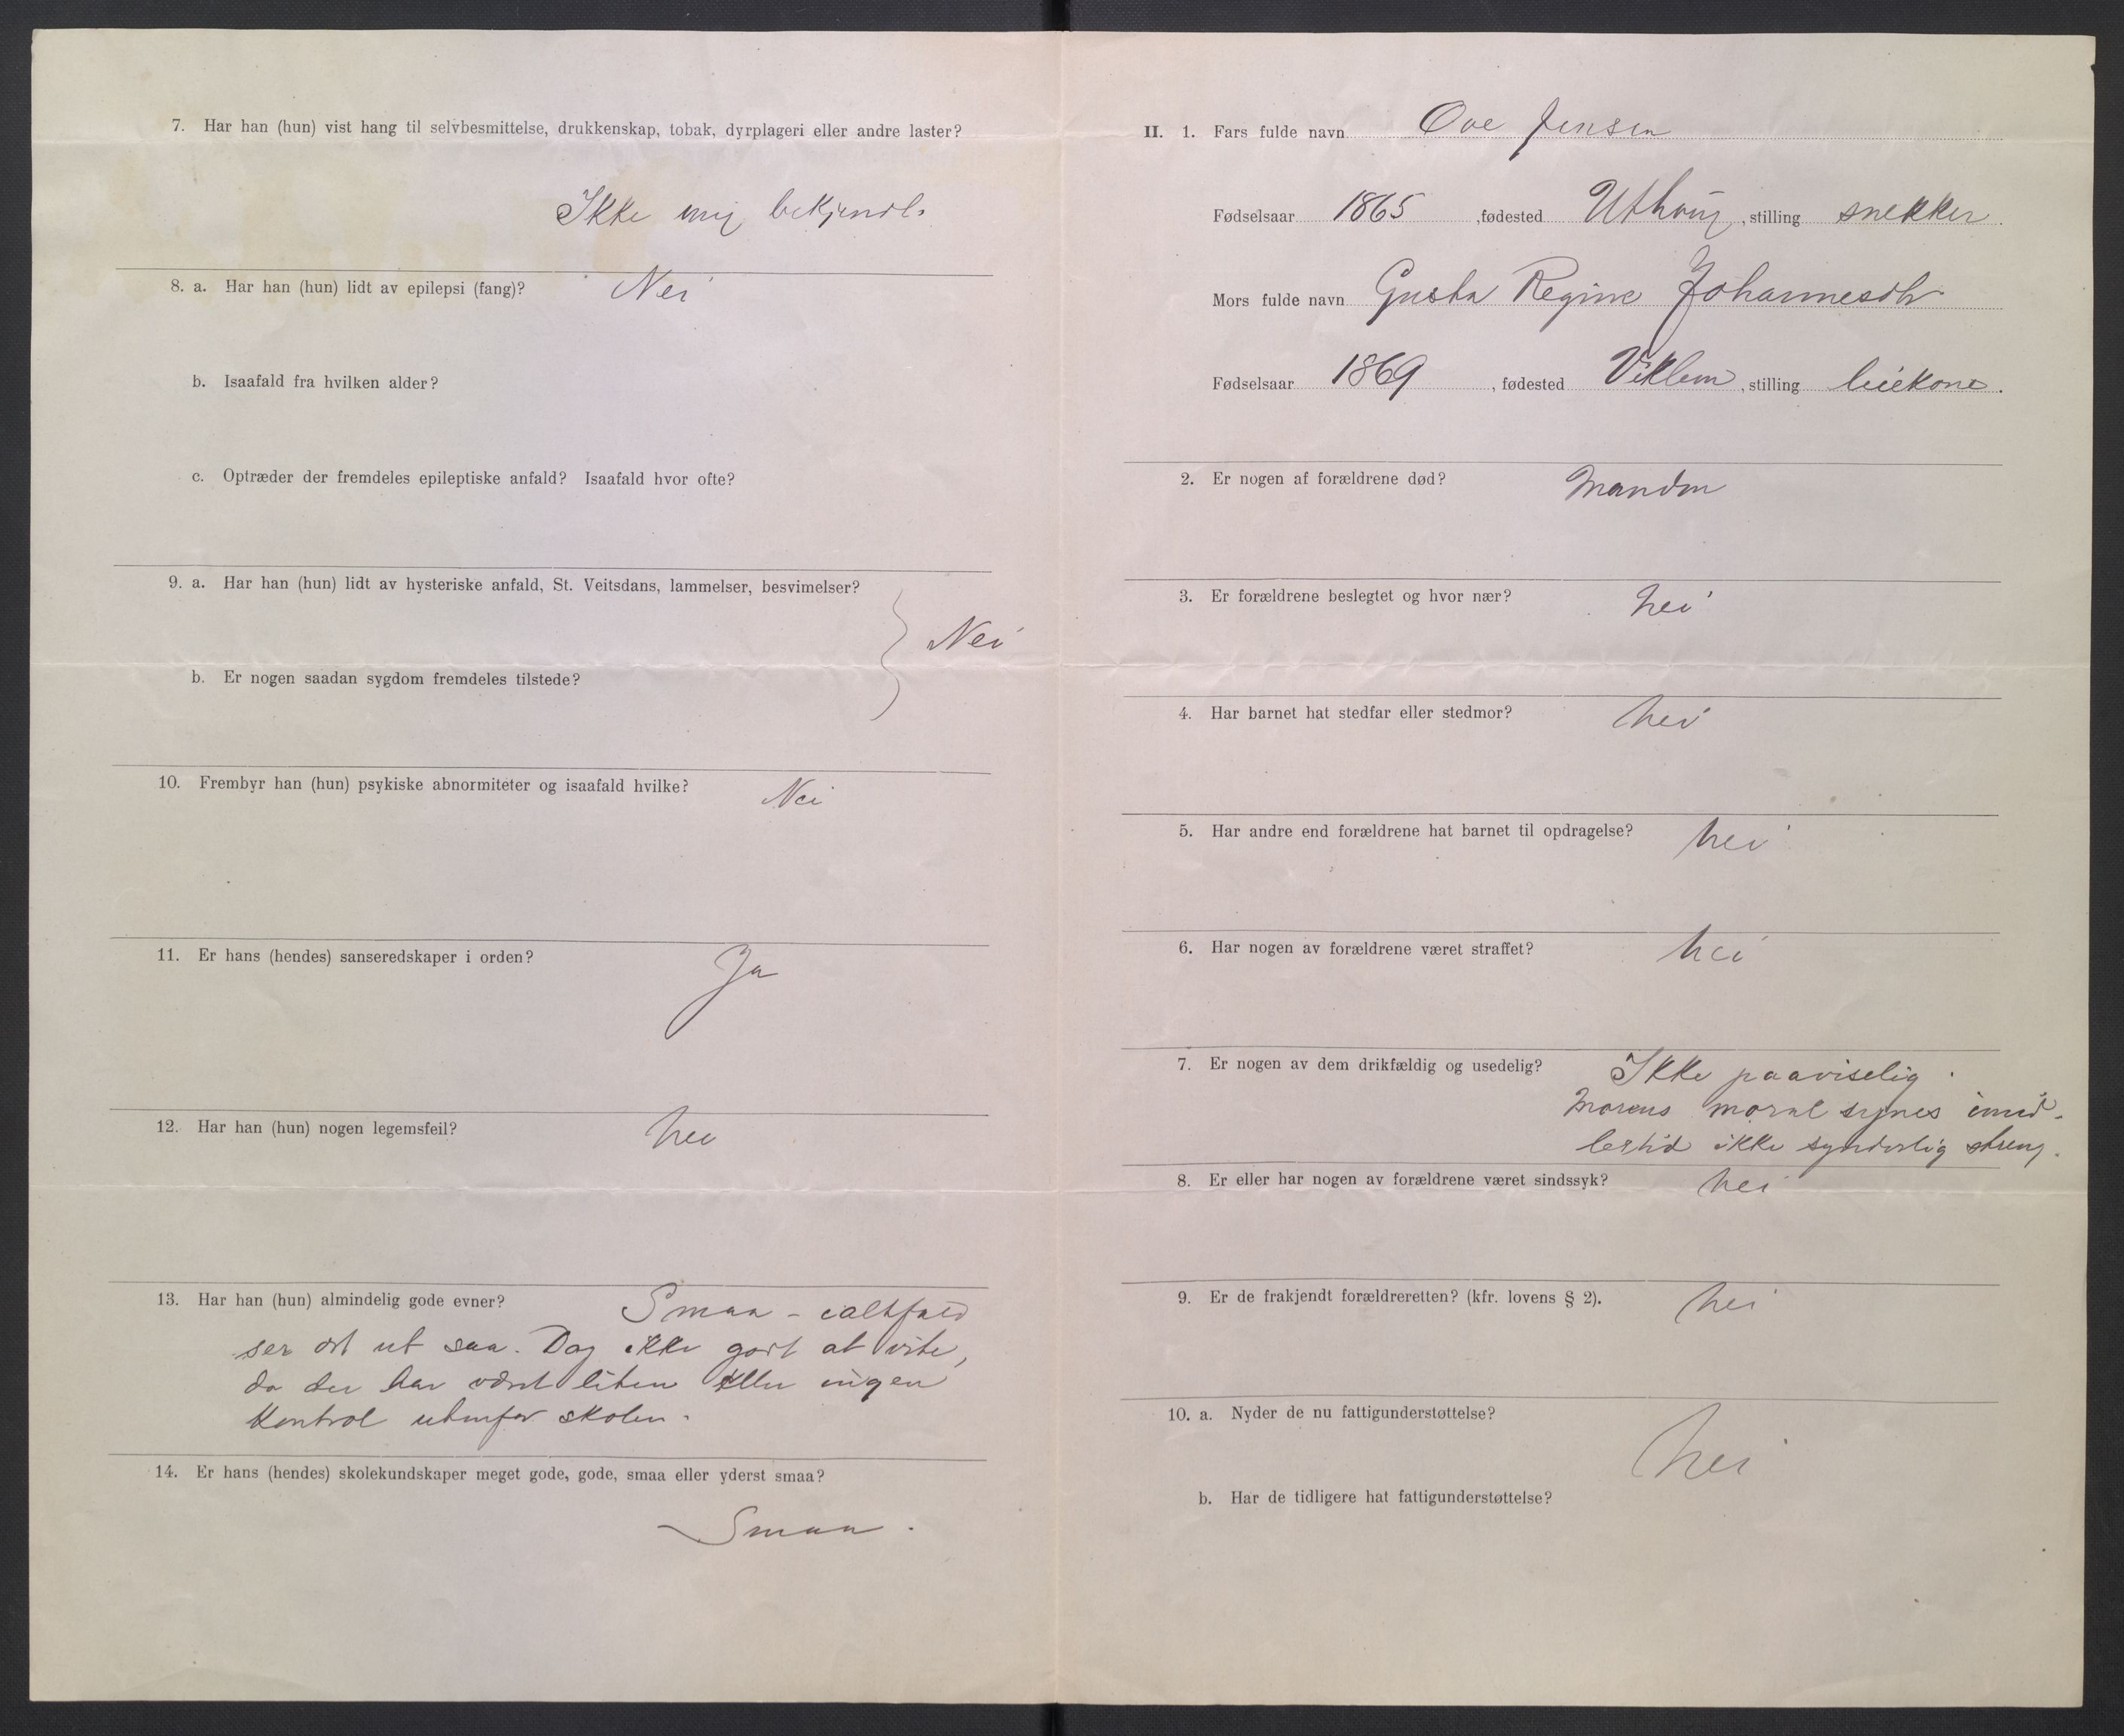 7. Har han (hun) vist hang til selvbesmittelse, drukkenskap, tobak, dyrplageri eller andre laster?
Ikke mig bekjendt.
8. a. Har han (hun) lidt av epilepsi (fang)? Nei
b. Isaafald fra hvilken alder?
c. Optræder der fremdeles epileptiske anfald? Isaafald hvor ofte?
9. a. Har han (hun) lidt av hysteriske anfald, St. Veitsdans, lammelser, besvimelser?
Nei
b. Er nogen saadan sygdom fremdeles tilstede?
10. Frembyr han (hun) psykiske abnormiteter og isaafald hvilke? Nei
11. Er hans (hendes) sanseredskaper i orden? Ja
12. Har han (hun) nogen legemsfeil? nei
13. Har han (hun) almindelig gode evner? Smaa - ialtfald
ser det ut saa. Dog ikke godt at vite,
da der har været liten eller ingen
kontrol utenfor skolen.
14. Er hans (hendes) skolekundskaper meget gode, gode, smaa eller yderst smaa?
Smaa.
II. 1. Fars fulde navn Ove Jensen
Fødselsaar 1865, fødested Uthaug, stilling snekker.
Mors fulde navn Gusta Regine Johannesdtr
Fødselsaar 1869, fødested Viklem, stilling leiekone.
2. Er nogen af forældrene død? Manden
3. Er forældrene beslegtet og hvor nær? nei
4. Har barnet hat stedfar eller stedmor? nei
5. Har andre end forældrene hat barnet til opdragelse? nei
6. Har nogen av forældrene været straffet? nei
7. Er nogen av dem drikfældig og usedelig? Ikke paaviselig.
Morens moral synes imid-
lertid ikke synderlig streng.
8. Er eller har nogen av forældrene været sindssyk? nei
9. Er de frakjendt forældreretten? (kfr. lovens § 2). nei
10. a. Nyder de nu fattigunderstøttelse?
nei
b. Har de tidligere hat fattigunderstøttelse?